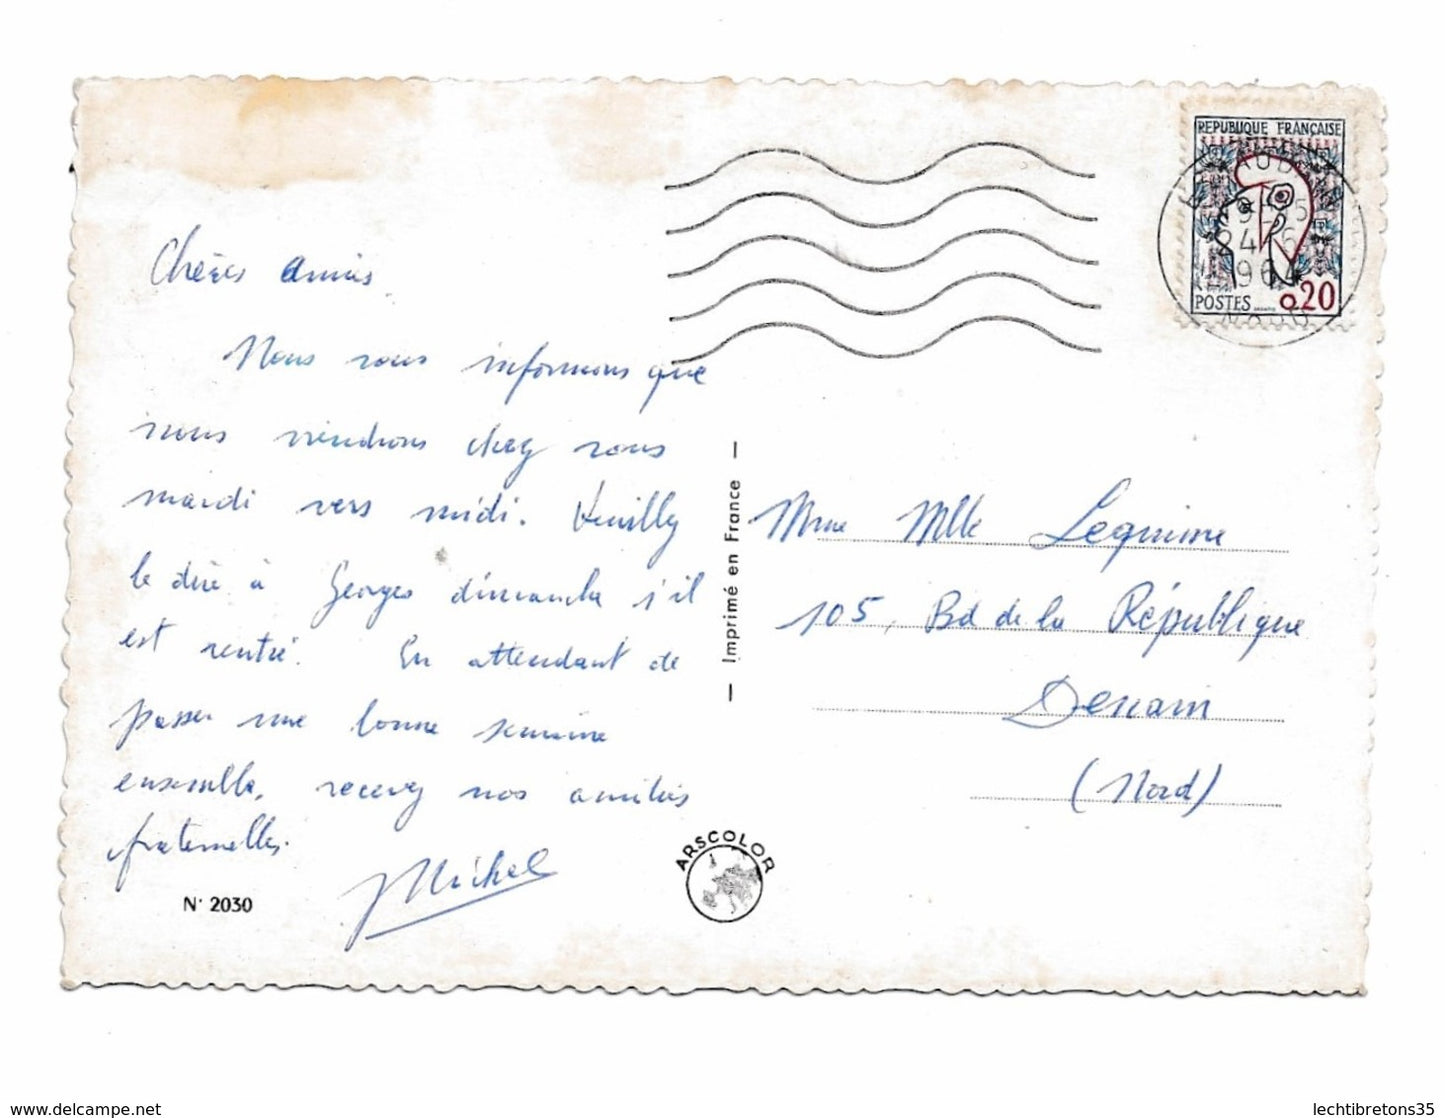 Chères amies.
Nous vous informons que
nous viendrons chez vous
mardi vers midi. Veuillez
le dire à Georges dimanche s'il
est rentré. En attendant de
passer une bonne semaine
ensemble, recevez nos amitiés
fraternelles.
Michel
N° 2030
ARSCOLOR
— Imprimé en France —
REPUBLIQUE FRANÇAISE
POSTES 0,20
24-6
1964
NORD
Mme Mlle Lequime
105, Bd de la République
Denain
(Nord)
delcampe.net
lechtibretons35